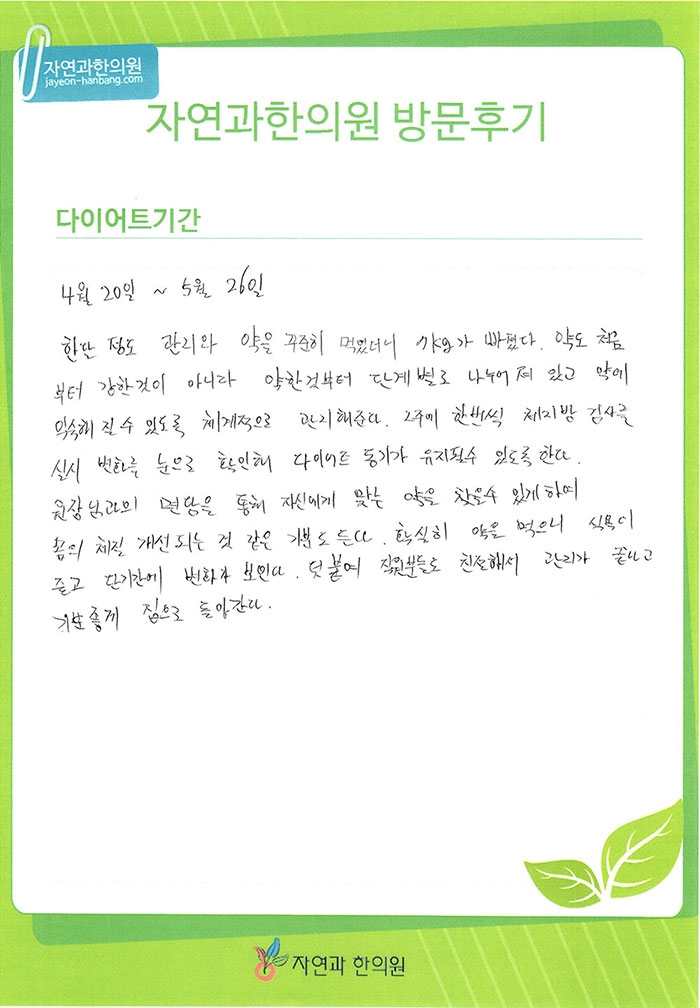 자연과한의원
jayeon-hanbang.com
자연과한의원 방문후기
다이어트기간
4월 20일 ~ 5월 26일
한달 정도 관리와 약을 꾸준히 먹었더니 가 빠졌다. 약도 처음
부터 강한것이 아니라 약한것부터 단계별로 나누어져 있고 약에
익숙해질수 있도록 체계적으로 관리해준다. 2주에 한번씩 체지방 검사를
실시 변화를 눈으로 확인해 다이어트 동기가 유지될수 있도록한다.
원장님과의 면담을 통해 자신에게 맞는 약을 찾을수 있게하며
몸의 체질 개선되는 것 같은 기분도 든다. 확실히 약을 먹으니 식욕이
줄고 단기간에 변화가 보인다. 덧붙여 직원분들도 친절해서 관리가 끝나고
기분좋게 집으로 돌아간다.
자연과 한의원